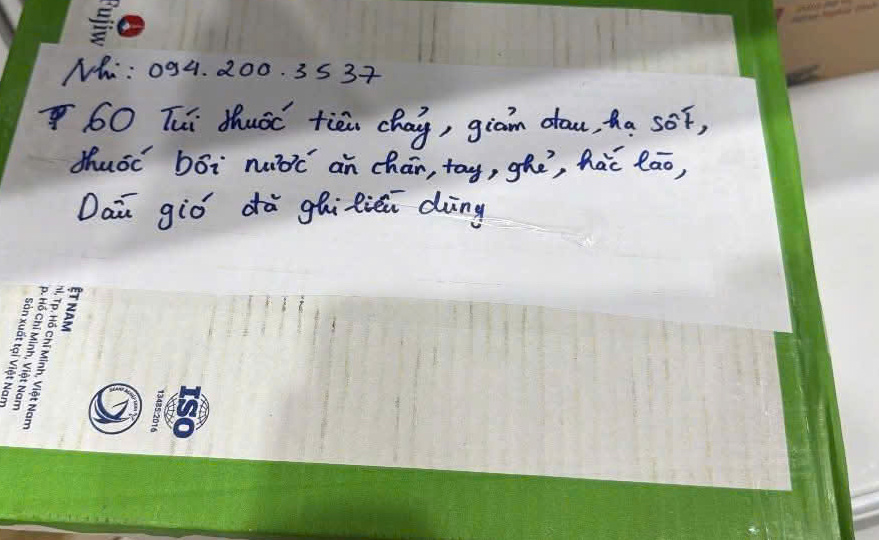 Fujiw
Nhi: 094.200.3537
60 Túi thuốc tiêu chảy, giảm đau, hạ sốt,
thuốc bôi nước ăn chân, tay, ghẻ, hắc lào,
Dầu gió đã ghi liều dùng
ỆT NAM
Tp. Hồ Chí Minh, Việt Nam
P. Hồ Chí Minh, Việt Nam
Sản xuất tại Việt Nam
ISO
13485:2016